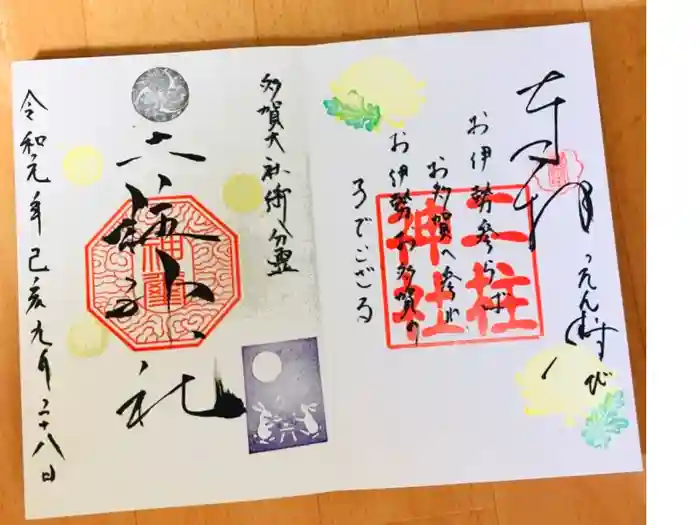 奉拝
えん結び
お伊勢参らば
お多賀へ参れ
お伊勢お多賀の
子でござる
二柱
神社
多賀大社御分霊
二柱神社
令和元年己亥九月二十八日